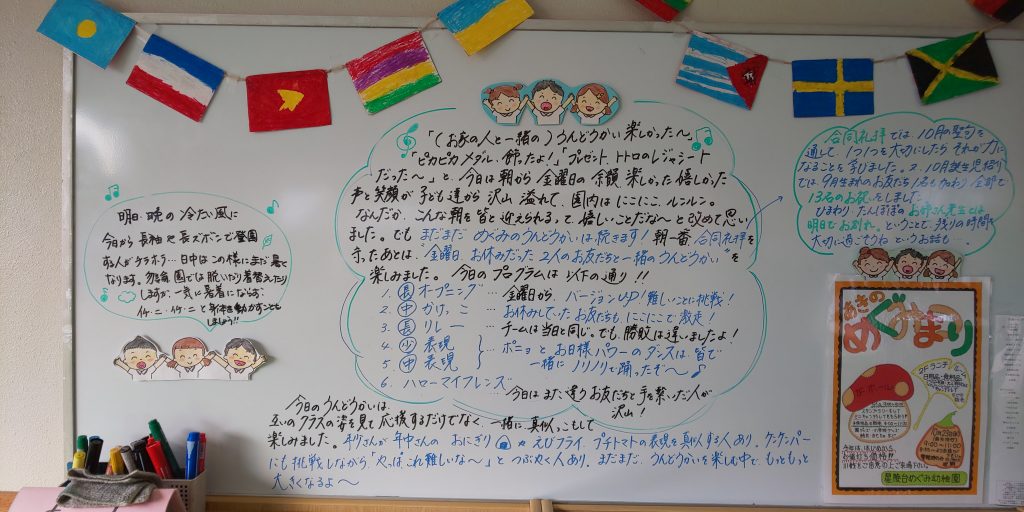 「(お家の人と一緒の)うんどうかい楽しかった〜。
「ピカピカメダル、飾ったよ!」「プレゼント、トトロのレジャーシート
だった〜」と、今日は朝から金曜日の余韻 楽しかった 嬉しかった
声と笑顔が子ども達から沢山溢れて、園内はにこにこ、ルンルン。
なんだか、こんな朝を皆と迎えられるって、嬉しいことだな〜と改めて思い
ました。でも まだまだ めぐみのうんどうかいは続きます! 朝一番、合同礼拝を
守ったあとは、金曜日、お休みだった2人のお友だちと一緒の"うんどうかい"を
楽しみました。今日のプログラムは以下の通り!!
1. 長 オープニング … 金曜日から、バージョンUP! 難しいことに挑戦!
2. 中 かけっこ … お休みしていたお友だちも、にこにこで激走!
3. 長 リレー … チームは当日と同じ。でも、勝敗は違いましたよ!
4. 少 表現
5. 中 表現
… ポニョとお日様パワーのダンスは、皆で
一緒にノリノリで踊ったぞ〜
6. ハローマイフレンズ … 今日は、また、違うお友だちと手を繋いだ人が
沢山!
今日のうんどうかいは、
互いのクラスの姿を見て応援するだけでなく、一緒に、真似っこもして
楽しみました。年少さんが年中さんのおにぎりやえびフライ、プチトマトの表現を真似する人あり、ケンケンパー
にも挑戦しながら「やっぱこれ難しいな〜」とつぶやく人あり。まだまだ、うんどうかいを楽しむ中で、もっともっと
大きくなるよ〜
明日・晩の冷たい風に
今日から長袖や長ズボンで登園
する人がチラホラ…日中はこの様にまだ暑く
なります。勿論、園では脱いだり着替えたり
しますが、一気に暑着にならず、
イケ・ニ・イケ・ニと身体を動かすことも
しましょう!!
合同礼拝では、10月の聖句を
通して、1つ1つを大切にしたら それが力に
なることを学びました。又、10月誕生児祝りで
は、9月生まれのお友だち1名も加わり、全部で
13名のお祝いをしました!
ひまわり、たんぽぽのお姉さん先生とは
明日でお別れ。ということで、残りの時間を
大切に過ごそうね というお話も…。
あきの
めぐみまつり
1Fホール
2Fランチルーム
9:00〜11:00
星陵台めぐみ幼稚園